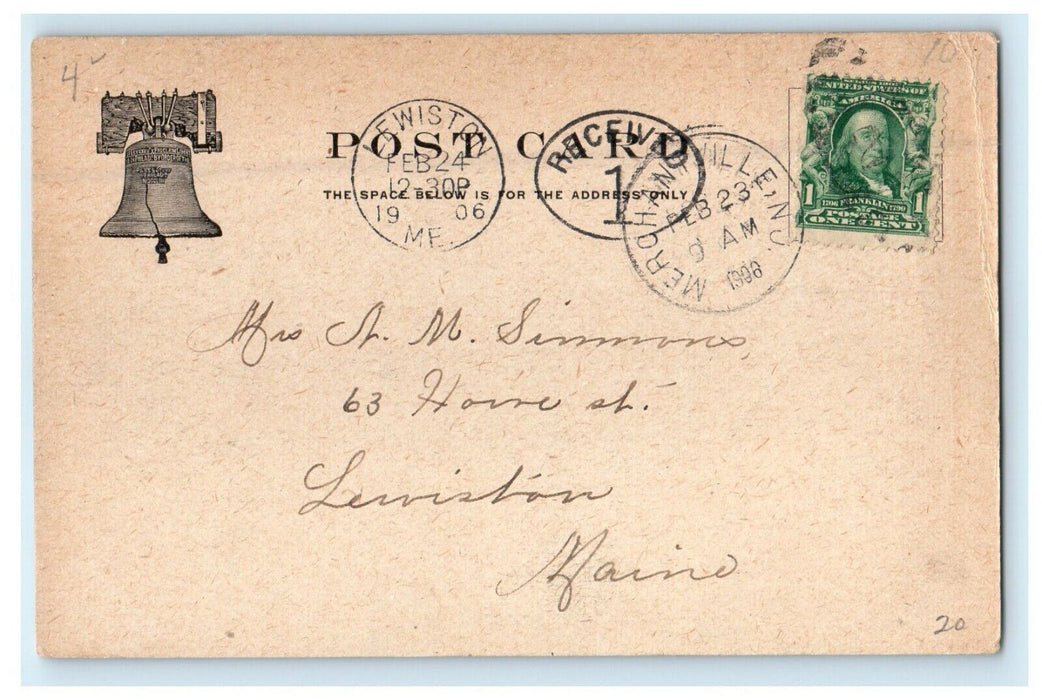 4
10
POST CARD
THE SPACE BELOW IS FOR THE ADDRESS ONLY
LEWISTON
FEB 24
12-30P
19 06
ME.
RECEIVED
1
MERCHANTVILLE, N.J.
FEB 23
9 AM
1906
UNITED STATES OF
AMERICA
1 1
1706 FRANKLIN 1790
POSTAGE
ONE CENT
Mrs A. M. Simmons
63 Howe st.
Lewiston
Maine
20